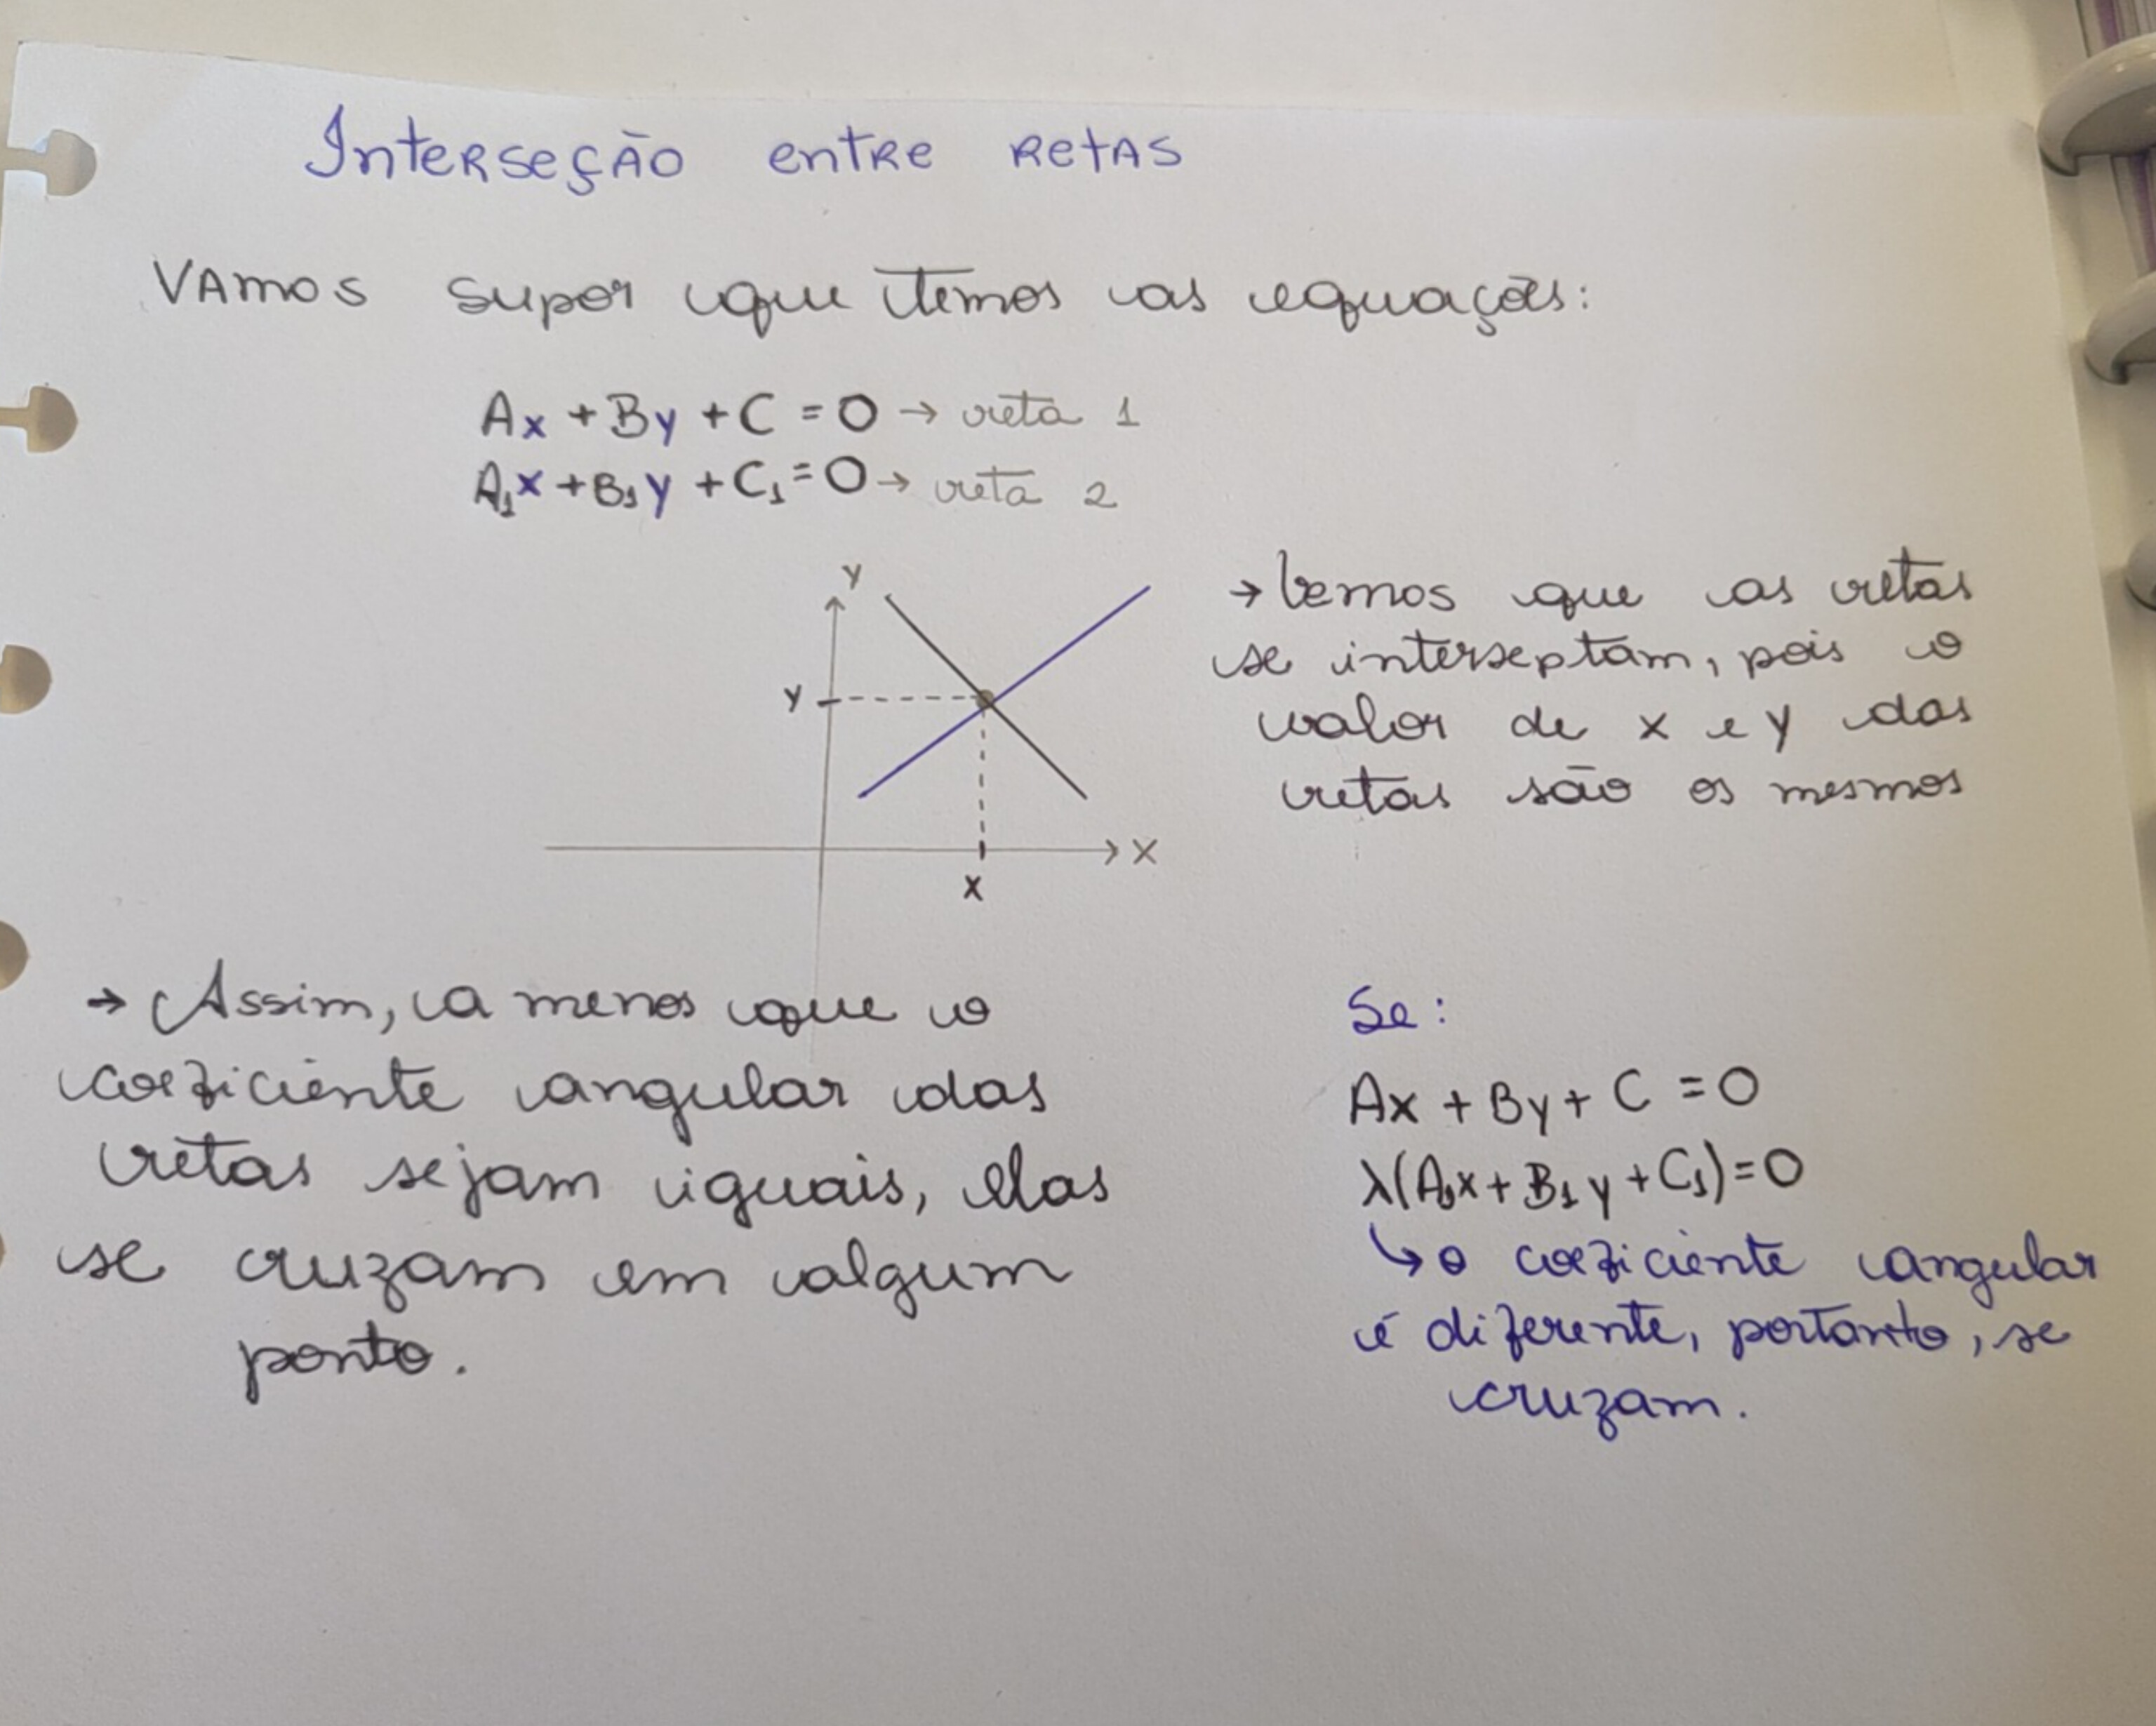 Interseção entre retas
Vamos supor que temos as equações:
Ax + By + C = 0 → reta 1
A₁x + B₁y + C₁ = 0 → reta 2
y
y
x
x
→ Vemos que as retas
se interseptam, pois o
valor de x e y das
retas são os mesmos
→ Assim, a menos que o
coeficiente angular das
retas sejam iguais, elas
se cruzam em algum
ponto.
Se:
Ax + By + C = 0
λ(A₁x + B₁y + C₁) = 0
↳ o coeficiente angular
é diferente, portanto, se
cruzam.